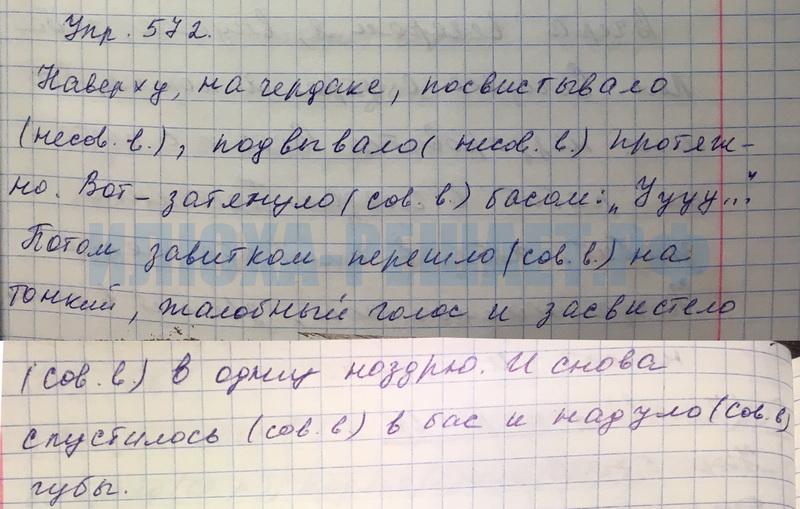 Упр. 572.
Наверху, на чердаке, посвистывало
(несов. в.), подвывало (несов. в.) протяж-
но. Вот – затянуло (сов. в.) басом: „Уууу..."
Потом завитком перешло (сов. в.) на
ИЛЮХА-РЕШАЕТ.РФ
тонкий, жалобный голос и засвистело
(сов. в.) в одну ноздрю. И снова
спустилось (сов. в) в бас и надуло (сов. в)
губы.